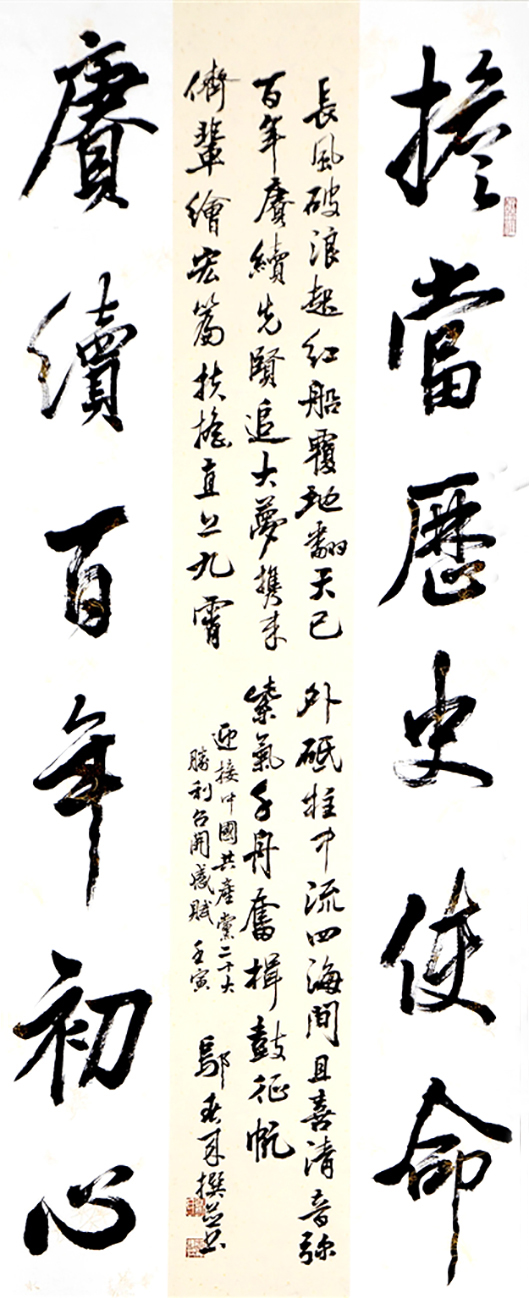 擔當歷史使命
長風破浪起紅船覆地翻天已
百年賡續先賢追大夢携来
儕輩繪宏篇扶搖直上九霄
外砥柱中流四海間且喜清音弥
紫氣千舟奮楫鼓征帆
迎接中國共産黨二十大
勝利召開感賦 壬寅
撰並書
賡續百年初心